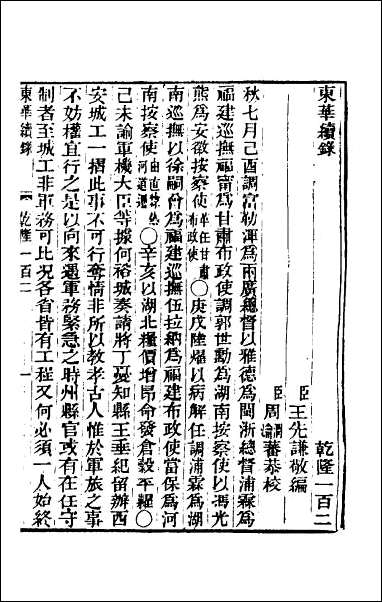 東華續錄　乾隆一百二
臣王先謙敬編
臣周瀹蕃恭校
秋七月己酉調富勒渾為兩廣總督以雅德為閩浙總督浦霖為
福建巡撫福甯為甘肅布政使調郭世勳為湖南按察使以馮光
熊為安徽按察使庚戌陸燿以病解任調浦霖為湖
南巡撫以徐嗣曾為福建巡撫伍拉納為福建布政使富保為河
南按察使由直隸熱河道遷○辛亥以湖北糧價增昂命發倉穀平糶○
己未諭軍機大臣等據何裕城奏請將丁憂知縣王垂紀留辦西
安城工一摺此事不可行奪情非所以教孝古人惟於軍旅之事
不妨權宜行之是以向來遇軍務緊急之時州縣官或有在任守
制者至城工非軍務可比況各省皆有工程又何必須一人始終
東華續錄　乾隆一百二　一